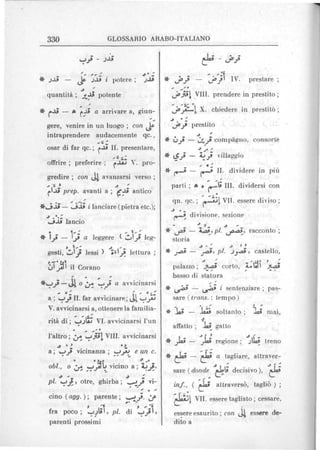 330 GLOSSARIO ARABO-ITALIANO
قدر - قرب
* قدر — َ قَدَرَ i potere ; قَدْر
quantità ; قدير potente
* قدم — a قَدِمَ a arrivare a, giun-
gere, venire in un luogo ; con على
intraprendere audacemente qc.,
osar di far qc.; قدّم II. presentare,
offrire ; preferire ; تقدّم V. pro-
gredire ; con إلى avanzarsi verso ;
قدّام prep. avanti a ; قديم antico
* قذف — قذف i lanciare (pietra etc.);
قذف lancio
* قرأ — قرأ a leggere (
gesti, lessi) قراءة lettura ;
القرآن il Corano
* قرب — إلى o من قرب a avvicinarsi
a ; قرّب II. far avvicinare; إلى تقرّب
V. avvicinarsi a, ottenere la familia-
rità di ; تقارب VI. avvicinarsi l'un
l'altro ; من اقترب VIII. avvicinarsi
a ; قرب vicinanza ; بقرب e un c.
obl., o من بالقرب vicino a ; قربة,
pl. قرب, otre, ghirba ; قريب vi-
cino (agg.) ; parente ; عن قريب
fra poco ; أقارب, pl. di قريب,
parenti prossimi
قرض - قطع
* قرض — أقرض IV. prestare ;
اقترض VIII. prendere in prestito ;
استقرض X. chiedere in prestito ;
قرض prestito
* قرن — قرين compagno, consorte
* قرى — قرية villaggio
* قسم — قسّم II. dividere in più
parti ; III. dividersi con
qn. qc. ; انقسم VII. essere diviso ;
قسمة divisione, sezione
* قصّ — قصّة, pl. قصص, racconto ;
storia
* قصر — قصر, pl. قصور, castello,
palazzo ; قصير corto,
basso di statura
* قضى — قضى i sentenziare ; pas-
sare (trans. : tempo)
* قط — فقط soltanto ; قطّ mai,
affatto ; قطّ gatto
* قطر — قطر regione ; قطار treno
* قطع — قطع a tagliare, attraver-
sare (donde قاطع decisivo), قطع
inf., ( قطع attraversò, tagliò) ;
انقطع VII. essere tagliato ; cessare,
essere esaurito ; con إلى essere de-
dito a